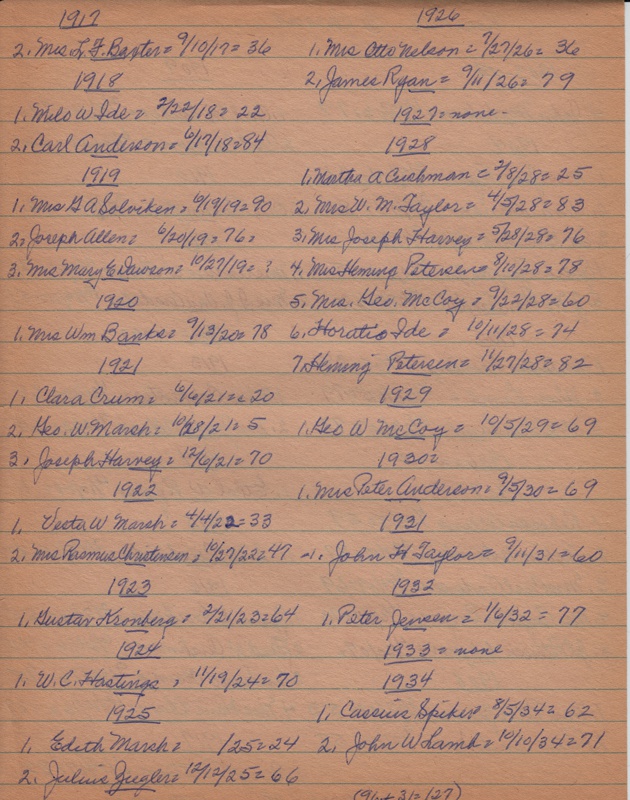 1917
2. Mrs L. F. Baxter = 9/10/17 = 36
1918
1. Milo W Ide = 2/22/18 = 22
2. Carl Anderson = 6/17/18 = 84
1919
1. Mrs G A Solviken = 6/19/19 = 90
2. Joseph Allen = 6/20/19 = 76 =
3. Mrs Mary E Dawson = 10/27/19 = ?
1920
1. Mrs Wm Banks = 9/13/20 = 78
1921
1. Clara Crum = 6/6/21 = 20
2. Geo. W. Marsh = 10/28/21 = 5
3. Joseph Harvey = 12/6/21 = 70
1922
1. Vesta W Marsh = 4/4/22 = 33
2. Mrs Rasmus Christensen = 10/27/22 = 47
1923
1. Gustav Kronberg = 2/21/23 = 64
1924
1. W. C. Hastings, 11/19/24 = 70
1925
1. Edith Marsh = /25 = 24
2. Julius Zugler = 12/12/25 = 66
1926
1. Mrs Otto Nelson = 7/27/26 = 36
2. James Ryan = 9/11/26 = 79
1927 = none -
1928
1. Martha A Cushman = 2/8/28 = 25
2. Mrs W. M. Taylor = 4/5/28 = 83
3. Mrs Joseph Harvey = 5/28/28 = 76
4. Mrs Heming Petersen = 8/10/28 = 78
5. Mrs. Geo. McCoy = 9/22/28 = 60
6. Horatio Ide = 10/11/28 = 74
7. Heming Petersen = 11/27/28 = 82
1929
1. Geo W McCoy = 10/5/29 = 69
1930 =
1. Mrs Peter Anderson = 9/5/30 = 69
1931
1. John H Taylor = 9/11/31 = 60
1932
1. Peter Jensen = 1/6/32 = 77
1933 = none
1934
1. Cassius Spiker = 8/5/34 = 62
2. John W Lamb = 10/10/34 = 71
(96 + 31 = 127)